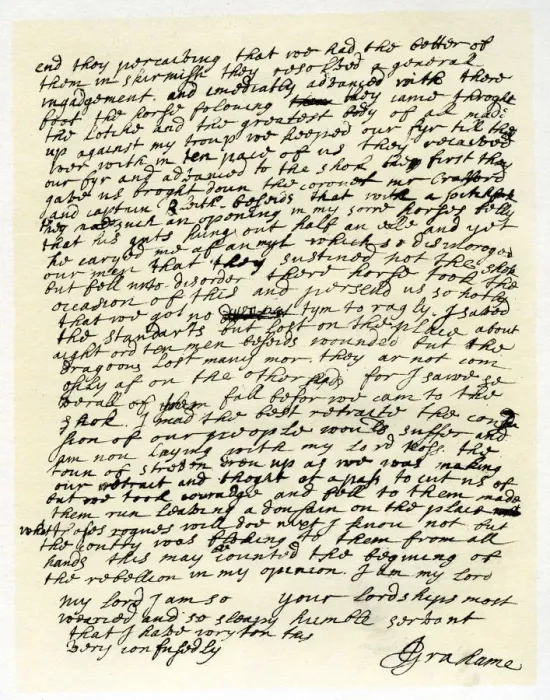 end they percaiving that we had the better of
them in skirmish they resolved a generall
ingadgement and imediatly advanced with there
foot the horse folouing they came throght
the lotche and the greatest body of all made
up against my troup we keeped our fyr till they
wer with in ten pace of us they recaived
our fyr and advanced to the shok the first they
gave us broght doun the coronet mr Crafford
and captain Bleith besids that with a pitchfork
they made such an opening in my sorre horses belly
that his guts hung out half an elle and yet
he caryed me af an myl which so discoroged
our men that they sustined not the shok
but fell into disorder there horse took the
occasion of this and persend us so hotly
that we got no tym to ragly I saved
the standarts but lost on the place about
aight ord ten men besids wounded but the
dragoons lost many mor they ar not com
esily af on the other side for I sawe se
verall of them fall befor we cam to the
shok. I mad the best retraite the confu
sion of our people would suffer and
am nou laying with my Lord Rosse the
toun of streven dreu up as we was making
our retrait and thoght of a pass to cut us of
but we took couradge and fell to them made
them run leaving a dousain on the place
what thoses rogues will doe next I knou not but
the contry was floking to them from all
hands this may be counted the begining of
the rebellion in my opinion. I am my lord
My lord I am so your lordships most
wearied and so sleapy humble servant
that I have wryton this
very confusedly
JGrahame